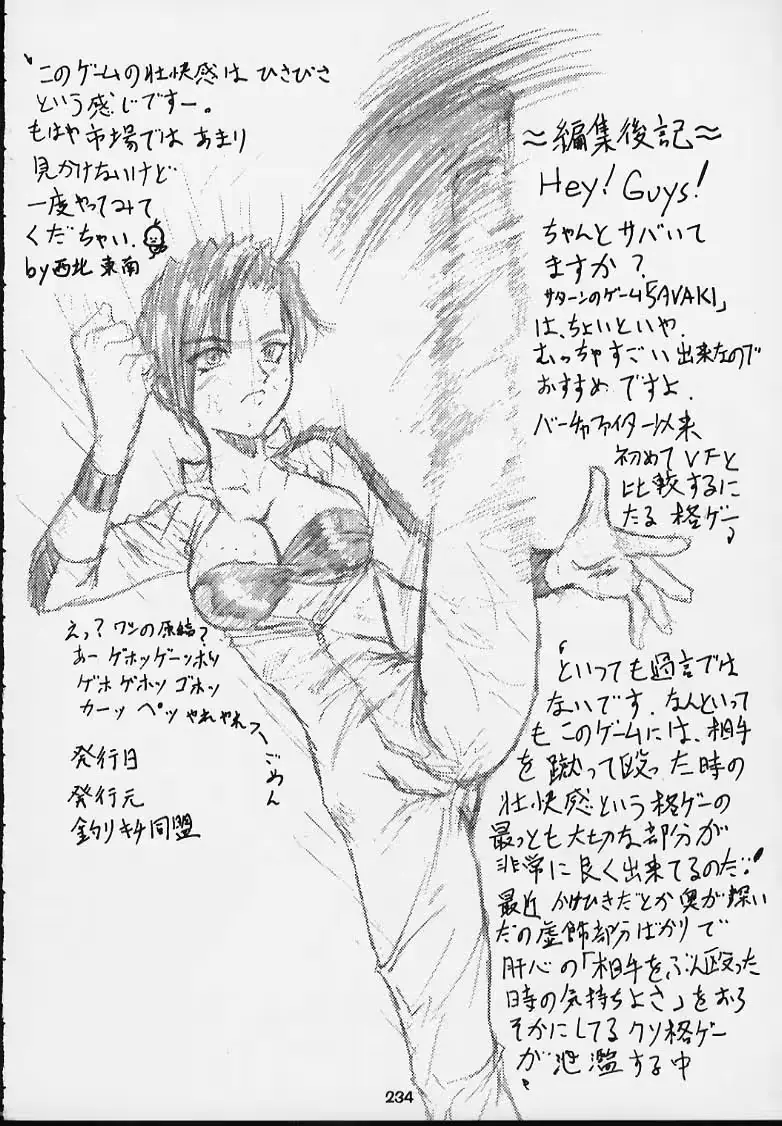 ≈編集後記≈
Hey! Guys!
ちゃんとサバいて
ますか?
サターンのゲーム「SAVAKI」
は、ちょいといや、
むっちゃすごい出来なので
おすすめですよ。
バーチャファイター以来
初めてVFと
比較するに
たる格ゲー
といっても過言では
ないです。なんといって
もこのゲームには、相手
を蹴って殴った時の
壮快感という格ゲーの
最っとも大切な部分が
非常に良く出来てるのだ!
最近かけひきだとか奥が深い
だの虚飾部分ばかりで
肝心の「相手をぶん殴った
時の気持ちよさ」をおろ
そかにしてるクソ格ゲー
が氾濫する中
このゲームの壮快感はひさびさ
という感じですー。
もはや市場ではあまり
見かけないけど
一度やってみて
くだちゃい。
by西北東南
えっ?ワシの原稿?
あー ゲホッゲーッホッ
ゲホゲホッ ゴホッ
カーッ ペッ やれやれ
ごめん
発行日
発行元
釣りキチ同盟
234